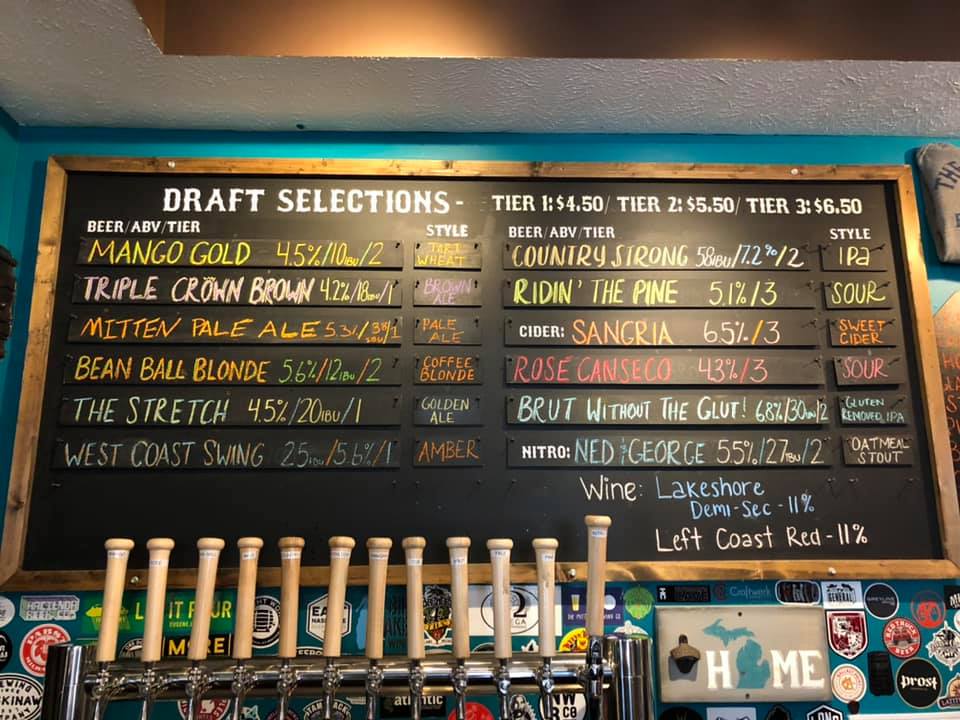 DRAFT SELECTIONS- TIER 1: $4.50/ TIER 2: $5.50/ TIER 3: $6.50
BEER/ABV/TIER STYLE
MANGO GOLD 4.5%/10IBU/2 TART WHEAT
TRIPLE CROWN BROWN 4.2%/18IBU/1 BROWN ALE
MITTEN PALE ALE 5.3%/38IBU/1 PALE ALE
BEAN BALL BLONDE 5.6%/12IBU/2 COFFEE BLONDE
THE STRETCH 4.5%/20IBU/1 GOLDEN ALE
WEST COAST SWING 25IBU/5.6%/1 AMBER
BEER/ABV/TIER STYLE
COUNTRY STRONG 58IBU/7.2%/2 IPA
RIDIN' THE PINE 5.1%/3 SOUR
CIDER: SANGRIA 6.5%/3 SWEET CIDER
ROSÉ CANSECO 4.3%/3 SOUR
BRUT WITHOUT THE GLUT! 6.8%/30IBU/2 GLUTEN REMOVED IPA
NITRO: NED & GEORGE 5.5%/27IBU/2 OATMEAL STOUT
Wine: Lakeshore
Demi-Sec - 11%
Left Coast Red - 11%
THE
HACIENDA
MORE
atlantic
Craftwerk
GENERAL
RED TRUCK
BEER
prost
HOME